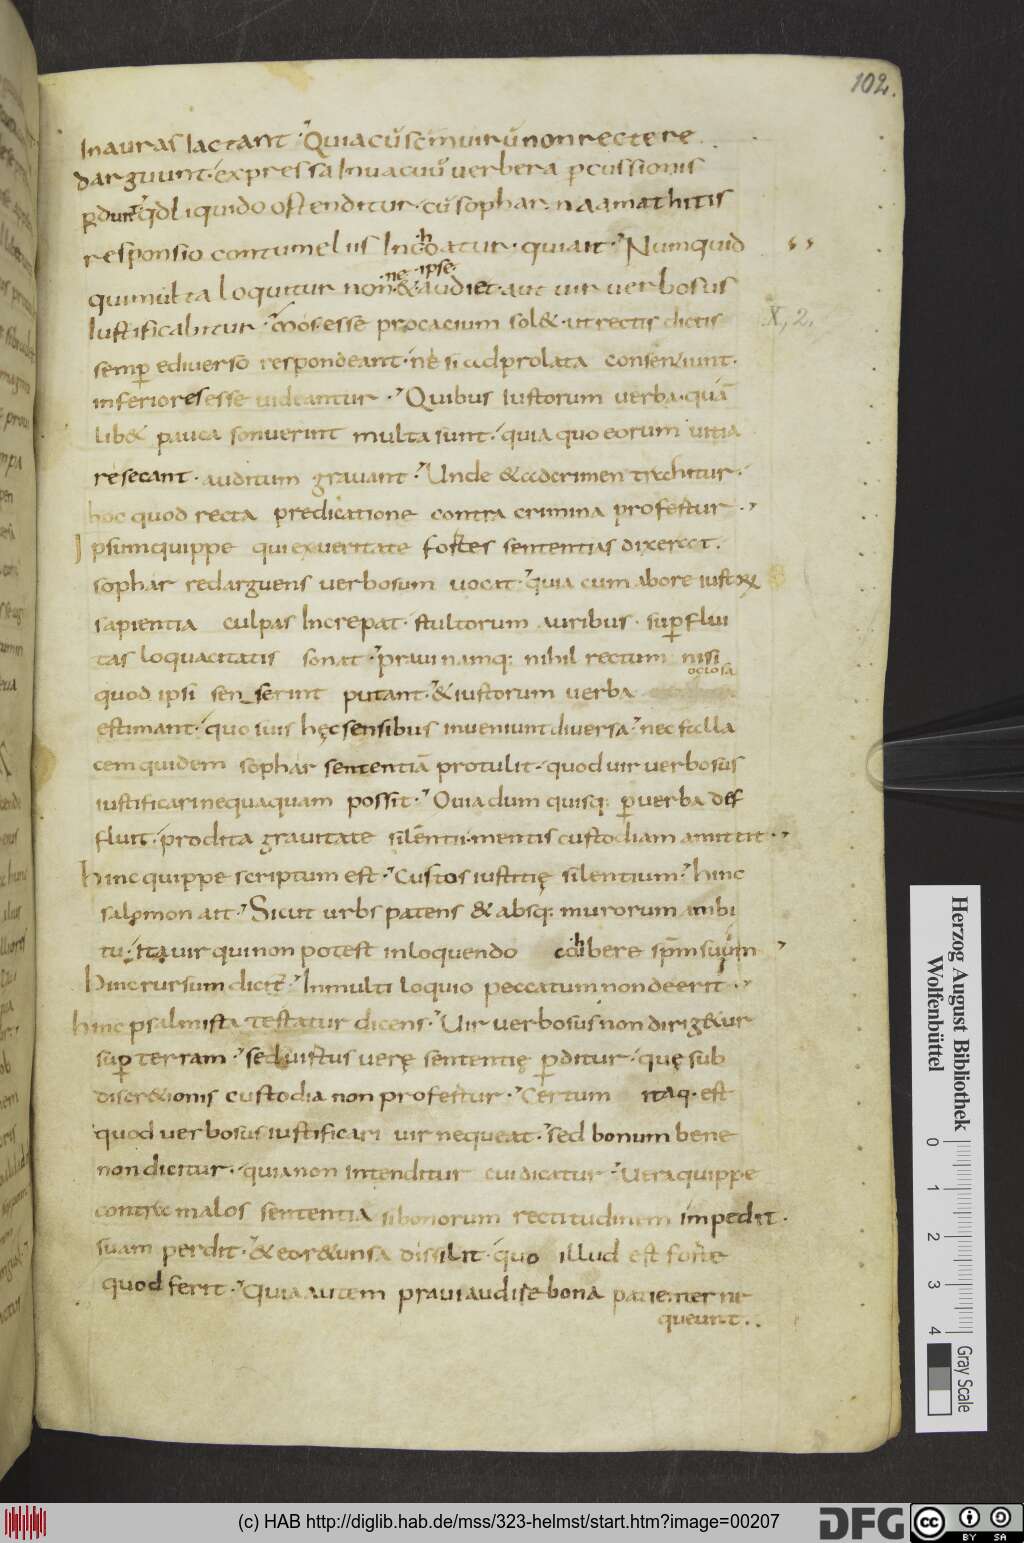 102.
In auras iactant. Quia cū scm̄ uirū non recte re
darguunt. expressa In uacuū uerbera percussionis
perdunt. qđ liquido ostenditur. cū sophar naamathitis
responsio contumeliis Inchoatur. qui ait. Numquid
qui multa loquitur non ne & ipse audiet. aut uir uerbosus
X, 2.
Iustificabitur. Mos esse procacium sol&. ut rectis dictis
semper e diuerso respondeant. ne si ad prolata consentiunt.
inferiores esse uideantur. Quibus iustorum uerba. quā
lib& pauca sonuerint multa sunt. quia quo eorum uitia
resecant. auditum grauant. Unde & ad crimen trahitur.
hoc quod recta predicatione contra crimina profertur.
Ipsum quippe qui ex ueritate fortes sententias dixerat.
sophar redarguens uerbosum uocat. quia cum ab ore iustorum
sapientia culpas Increpat. stultorum auribus. superflui
tas loquacitatis sonat. praui namq: nihil rectum nisi
quod ipsi senserint putant. & iustorum uerba ociosa
estimant. quo suis hęc sensibus inueniunt diuersa. nec falla
cem quidem sophar sententiā protulit. quod uir uerbosus
iustificari nequaquam possit. Quia dum quisq: per uerba def
fluit. prodita grauitate silentii. mentis custodiam amittit.
hinc quippe scriptum est. Custos iustitię silentium. hinc
salomon ait. Sicut urbs patens & absq: murorum ambi
tu. ita uir qui non potest in loquendo cohibere spm̄ suum
hinc rursum dicit. In multiloquio peccatum non deerit.
hinc psalmista testatur dicens. Uir uerbosus non dirig&ur
super terram. sed uirtus uerę sententię perditur. quę sub
discr&ionis custodia non profertur. Certum itaq. est
quod uerbosus iustificari uir nequeat. sed bonum bene
non dicitur. quia non intenditur cui dicatur. Uera quippe
contra malos sententia si bonorum rectitudinem impedit.
suam perdit. & eo r&unsa dissilit. quo illud est forte
quod ferit. Quia autem praui audire bona patienter ne
queunt.
Herzog August Bibliothek
Wolfenbüttel
0 1 2 3 4
Gray Scale
(c) HAB http://diglib.hab.de/mss/323-helmst/start.htm?image=00207
DFG
cc BY SA